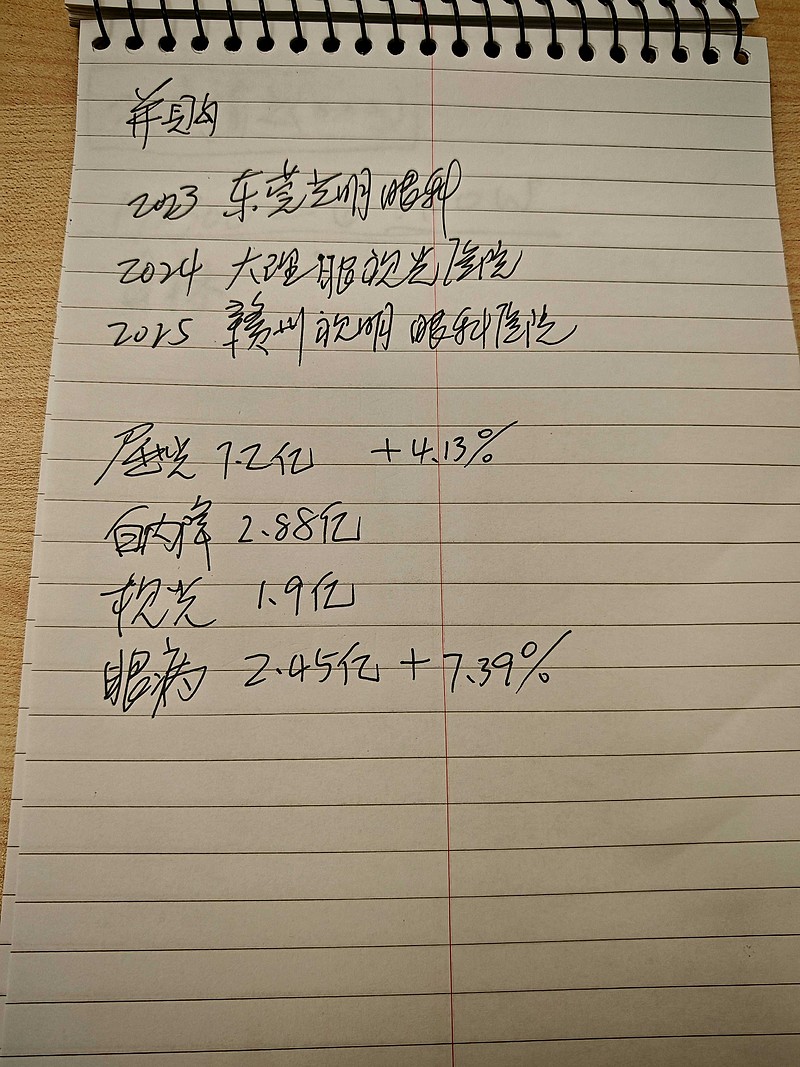 并购
2023 东莞光明眼科
2024 大理眼视光医院
2025 赣州视明眼科医院
屈光 7.2亿 +4.13%
白内障 2.88亿
视光 1.9亿
眼病 2.45亿 +7.39%